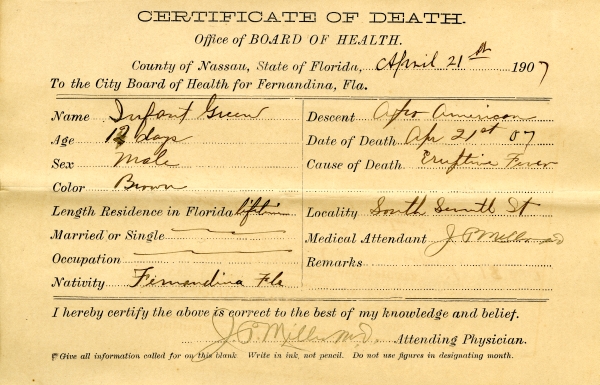 CERTIFICATE OF DEATH.
Office of BOARD OF HEALTH.
County of Nassau, State of Florida, April 21st 1907
To the City Board of Health for Fernandina, Fla.
Name Infant Green Descent Afro American
Age 12 days Date of Death Ap 21st 07
Sex Male Cause of Death Eruptive Fever
Color Brown
Length Residence in Florida lifetime Locality South Smith St
Married or Single Medical Attendant J P Mills MD
Occupation Remarks
Nativity Fernandina Fla
I hereby certify the above is correct to the best of my knowledge and belief.
J. P. Mills M.D. Attending Physician.
☞ Give all information called for on this blank. Write in ink, not pencil. Do not use figures in designating month.